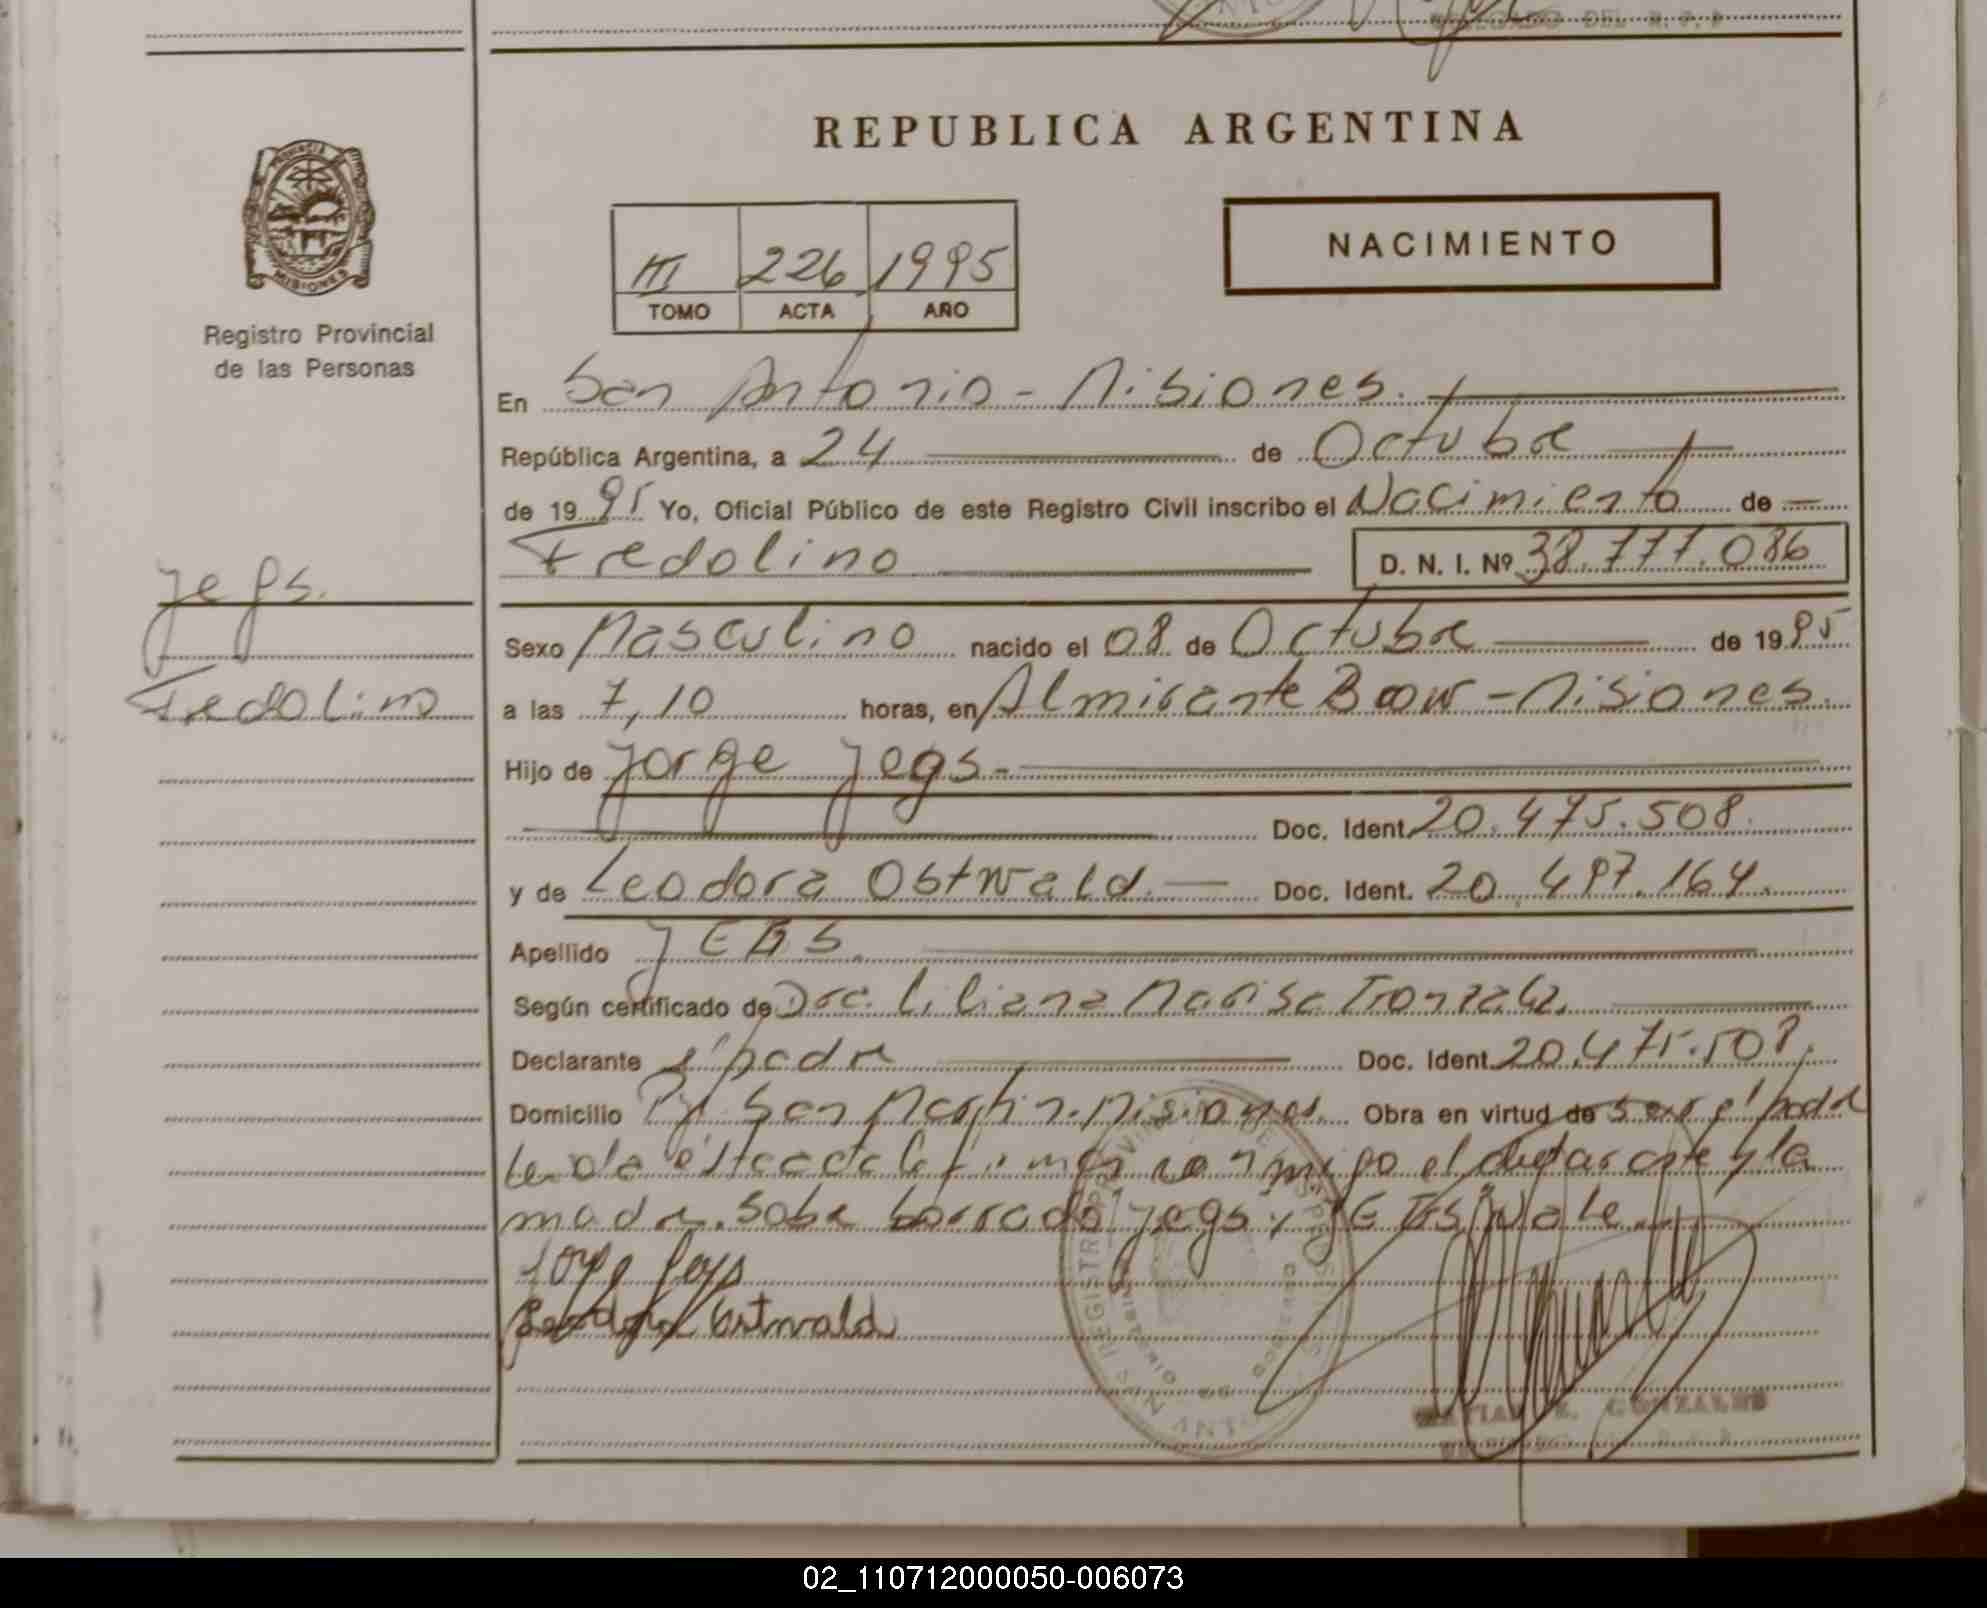 REPUBLICA ARGENTINA
PROVINCIA DE
MISIONES
Registro Provincial
de las Personas
NACIMIENTO
III 226 1995
TOMO ACTA AÑO
En San Antonio - Misiones.
República Argentina, a 24 de Octubre
de 1995 Yo, Oficial Público de este Registro Civil inscribo el Nacimiento de
Fredolino D. N. I. Nº 38.777.086
Jegs.
Fredolino
Sexo Masculino nacido el 08 de Octubre de 1995
a las 7,10 horas, en Almirante Brow - Misiones.
Hijo de Jorge Jegs.
Doc. Ident. 20.475.508.
y de Leodora Ostwald. Doc. Ident. 20.497.164.
Apellido JEGS.
Según certificado de Dra. Liliana Marisa
Declarante el padre Doc. Ident. 20.475.508.
Domicilio San Martin. Misiones. Obra en virtud de ser el padre
leida el acta la firman conmigo el declarante y la
madre. Sobre borrado Jegs y JEGS Vale.
Jorge Jegs
Leodora Ostwald
GONZALES
02_110712000050-006073